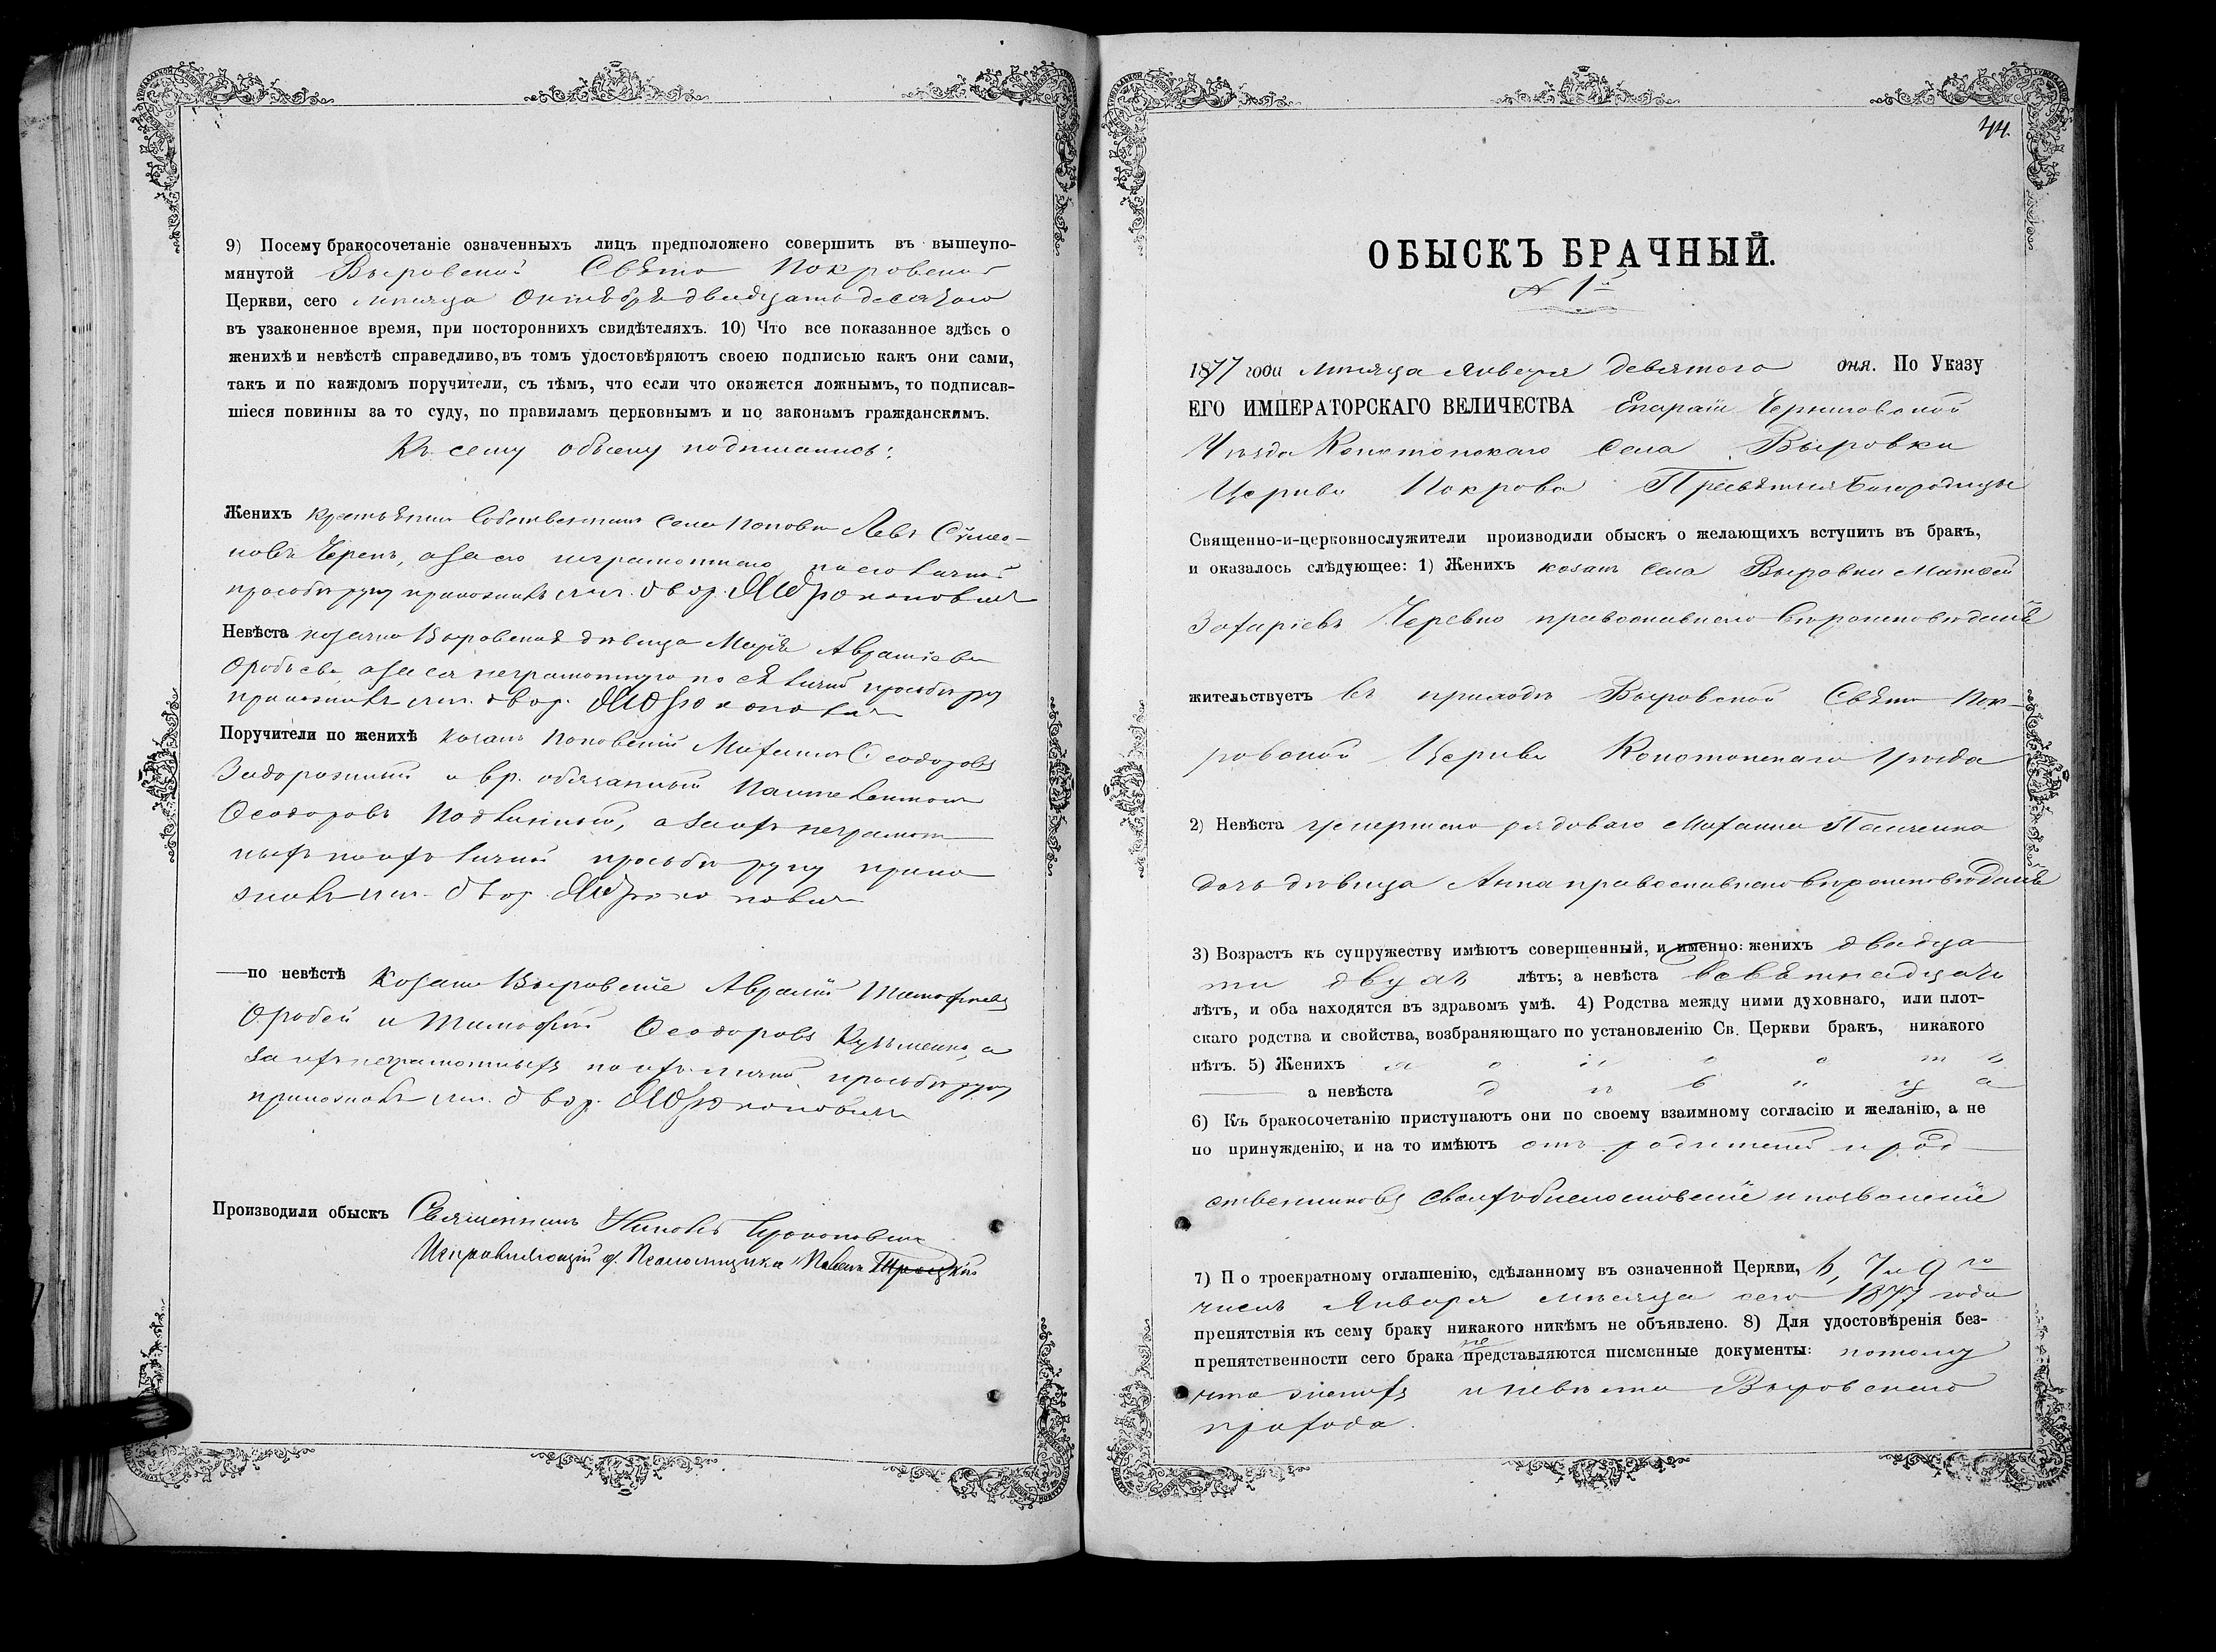 9) Посему бракосочетаніе означенныхъ лицъ предположено совершить въ вышеупо-
мянутой Выровской Свято Покровской
Церкви, сего мѣсяца Октября двадцать девятого
въ узаконенное время, при постороннихъ свидѣтеляхъ. 10) Что все показанное здѣсь о
женихѣ и невѣстѣ справедливо, въ томъ удостовѣряютъ своею подписью какъ они сами,
такъ и по каждомъ поручители, съ тѣмъ, что если что окажется ложнымъ, то подписав-
шіеся повинны за то суду, по правиламъ церковнымъ и по законамъ гражданскимъ.
Къ сему обыску подписались:
Женихъ крестьянинъ собственникъ села Поповки Левъ Сумео-
новъ Черепъ, а за его неграмотного по его личной
прозьбѣ руку приложилъ двор. Прокоповичъ
Невѣста козачка Выровская дѣвица Марія Авраміева
Оробьева, а за ея неграмотную по ея личной прозьбѣ руку
приложилъ двор. Прокоповичъ
Поручители по женихѣ козакъ Поповский Михаилъ Ѳеодоровъ
Задорожный и вр. обязанный Пантелеимонъ
Ѳеодоровъ а за ихъ неграмот-
ныхъ по ихъ личной прозьбѣ руку прило
жилъ двор. Прокоповичъ
— по невѣстѣ Козаки Выровскіе Аврамій Тимофѣевъ
Оробей и Тимофій Ѳеодоровъ Кузьменко, а
за ихъ неграмотныхъ по ихъ личной прозьбѣ руку
приложилъ двор. Прокоповичъ
Производили обыскъ Священникъ Прокоповичъ
Исправляющій д. Псаломщика Павелъ Троцкій
44.
ОБЫСКЪ БРАЧНЫЙ.
№ 1й
1877 года мѣсяца Января девятого дня. По Указу
ЕГО ИМПЕРАТОРСКАГО ВЕЛИЧЕСТВА Епархіи Черниговской
Уѣзда Конотопскаго Села Выровки
Церкви Покрова Пресвятыя Богородицы
Священно-и-церковнослужители производили обыскъ о желающихъ вступить въ бракъ,
и оказалось слѣдующее: 1) Женихъ козакъ Села Выровки Матѳей
Захаріевъ Черевко православнаго вѣроисповѣданія
жительствуетъ въ приходѣ Выровской Свято Пок-
ровской Церкви Конотопскаго Уѣзда
2) Невѣста умершего рядоваго Михаила
дочь дѣвица Анна православнаго вѣроисповѣданія
3) Возрастъ къ супружеству имѣютъ совершенный, и именно: женихъ двадца
ти двухъ лѣтъ; а невѣста девятнадцать
лѣтъ, и оба находятся въ здравомъ умѣ. 4) Родства между ними духовнаго, или плот-
скаго родства и свойства, возбраняющаго по установленію Св. Церкви бракъ, никакого
нѣтъ. 5) Женихъ холостъ
а невѣста дѣвица
6) Къ бракосочетанію приступаютъ они по своему взаимному согласію и желанію, а не
по принужденію, и на то имѣютъ отъ родителей и род
ственниковъ своихъ благословеніе и позволеніе
7) По троекратному оглашенію, сдѣланному въ означенной Церкви, 6, 7 и 9 го
числъ Января мѣсяца сего 1877 года
препятствія къ сему браку никакого никѣмъ не объявлено. 8) Для удостовѣренія без-
препятственности сего брака не представляются писменные документы: потому
что женихъ и невѣста Выровскаго
прихода.